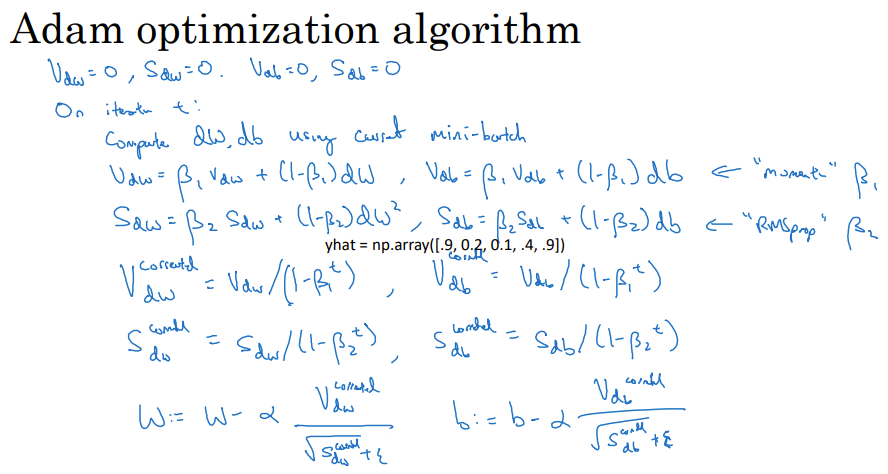 Adam optimization algorithm
V_dw = 0, S_dw = 0. V_db = 0, S_db = 0
On iteratn t:
Compute dW, db using current mini-batch
V_dw = β₁ V_dw + (1-β₁) dW, V_db = β₁ V_db + (1-β₁) db ← "moment" β₁
S_dw = β₂ S_dw + (1-β₂) dW², S_db = β₂ S_db + (1-β₂) db ← "RMSprop" β₂
yhat = np.array([.9, 0.2, 0.1, .4, .9])
V_dw^corrected = V_dw/(1-β₁^t), V_db^corrected = V_db/(1-β₁^t)
S_dw^corrected = S_dw/(1-β₂^t), S_db^corrected = S_db/(1-β₂^t)
W := W - α V_dw^corrected / (√S_dw^corrected + ε) b := b - α V_db^corrected / (√S_db^corrected + ε)